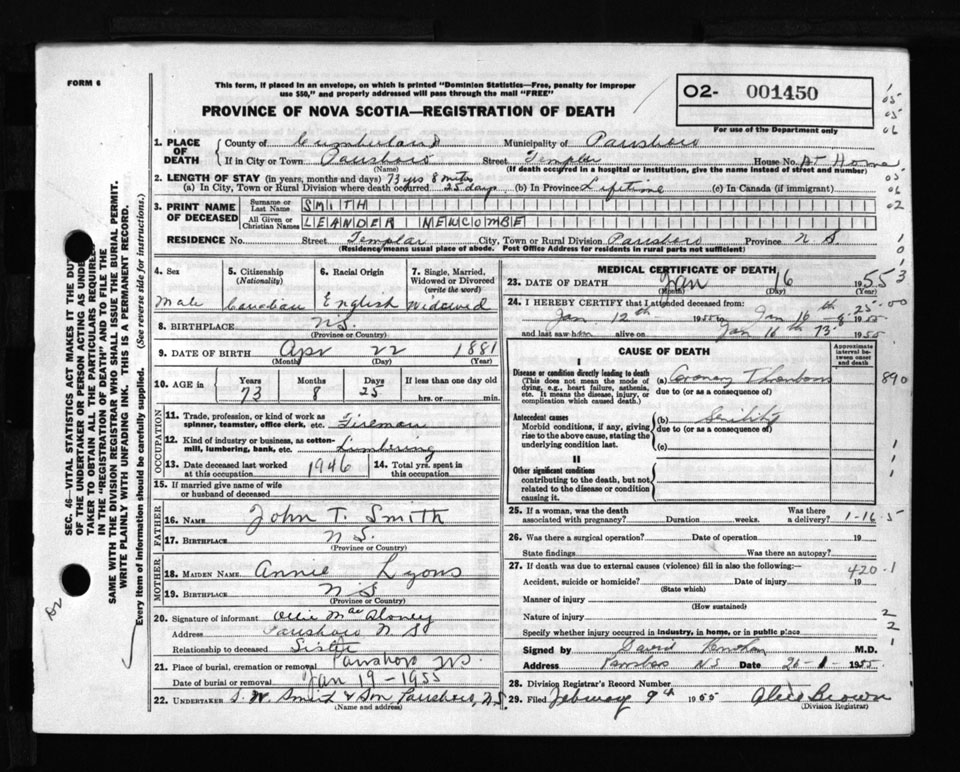 FORM 6
This form, if placed in an envelope, on which is printed "Dominion Statistics—Free, penalty for improper
use $50," and properly addressed will pass through the mail "FREE"
PROVINCE OF NOVA SCOTIA—REGISTRATION OF DEATH
O2- 001450
For use of the Department only
SEC. 46—VITAL STATISTICS ACT MAKES IT THE DUTY
OF THE UNDERTAKER OR PERSON ACTING AS UNDER-
TAKER TO OBTAIN ALL THE PARTICULARS REQUIRED
IN THE "REGISTRATION OF DEATH" AND TO FILE THE
SAME WITH THE DIVISION REGISTRAR WHO SHALL ISSUE THE BURIAL PERMIT.
WRITE PLAINLY WITH UNFADING INK. THIS IS A PERMANENT RECORD.
Every item of information should be carefully supplied. (See reverse side for instructions.)
1. PLACE OF DEATH
County of Cumberland Municipality of Parrsboro
If in City or Town Parrsboro Street Templar House No. At Home
(Name) (If death occurred in a hospital or institution, give the name instead of street and number)
2. LENGTH OF STAY (in years, months and days) 73 yrs 8 mths
(a) In City, Town or Rural Division where death occurred 25 days (b) In Province Lifetime (c) In Canada (if immigrant)
3. PRINT NAME OF DECEASED
Surname or Last Name SMITH
All Given or Christian Names LEANDER NEWCOMBE
RESIDENCE No. Street Templar City, Town or Rural Division Parrsboro Province N.S.
(Residence means usual place of abode. Post Office Address for residents in rural parts not sufficient)
4. Sex 5. Citizenship (Nationality) 6. Racial Origin 7. Single, Married, Widowed or Divorced (write the word)
Male Canadian English Widowed
8. BIRTHPLACE N.S.
(Province or Country)
9. DATE OF BIRTH Apr 22 1881
(Month) (Day) (Year)
10. AGE in Years Months Days If less than one day old
73 8 25 hrs. or min.
OCCUPATION
11. Trade, profession, or kind of work as
spinner, teamster, office clerk, etc. Fireman
12. Kind of industry or business, as cotton-
mill, lumbering, bank, etc. Lumbering
13. Date deceased last worked at this occupation 1946 14. Total yrs. spent in this occupation
15. If married give name of wife
or husband of deceased
FATHER
16. NAME John T. Smith
17. BIRTHPLACE N.S.
(Province or Country)
MOTHER
18. MAIDEN NAME Annie Lyons
19. BIRTHPLACE N.S.
(Province or Country)
20. Signature of informant Ollie Mac Aloney
Address Parrsboro N.S
Relationship to deceased Sister
21. Place of burial, cremation or removal Parrsboro N.S.
Date of burial or removal Jan 19-1955
22. UNDERTAKER Smith & Son Parrsboro, N.S.
(Name and address)
MEDICAL CERTIFICATE OF DEATH
23. DATE OF DEATH Jan 16 1955
(Month) (Day)
24. I HEREBY CERTIFY that I attended deceased from
Jan 12th 1955 to Jan 16 1955
and last saw him alive on Jan 16th 1955
CAUSE OF DEATH
Approximate interval between onset and death
I
Disease or condition directly leading to death
(This does not mean the mode of
dying, e.g., heart failure, asthenia,
etc. It means the disease, injury, or
complication which caused death.)
(a) Coronary Thrombosis
due to (or as a consequence of)
Antecedent causes
Morbid conditions, if any, giving
rise to the above cause, stating the
underlying condition last.
(b) Senility
due to (or as a consequence of)
(c)
II
Other significant conditions
contributing to the death, but not
related to the disease or condition
causing it.
25. If a woman, was the death Was there
associated with pregnancy? Duration weeks. a delivery? 1-16-5
26. Was there a surgical operation? Date of operation 19
State findings Was there an autopsy?
27. If death was due to external causes (violence) fill in also the following:— 420.1
Accident, suicide or homicide? Date of injury 19
(State which)
Manner of injury
(How sustained)
Nature of injury
Specify whether injury occurred in industry, in home, or in public place
Signed by David M.D.
Address Parrsboro N.S Date 26-1-1955
28. Division Registrar's Record Number
29. Filed February 9th 1955 Alice Brown
(Division Registrar)